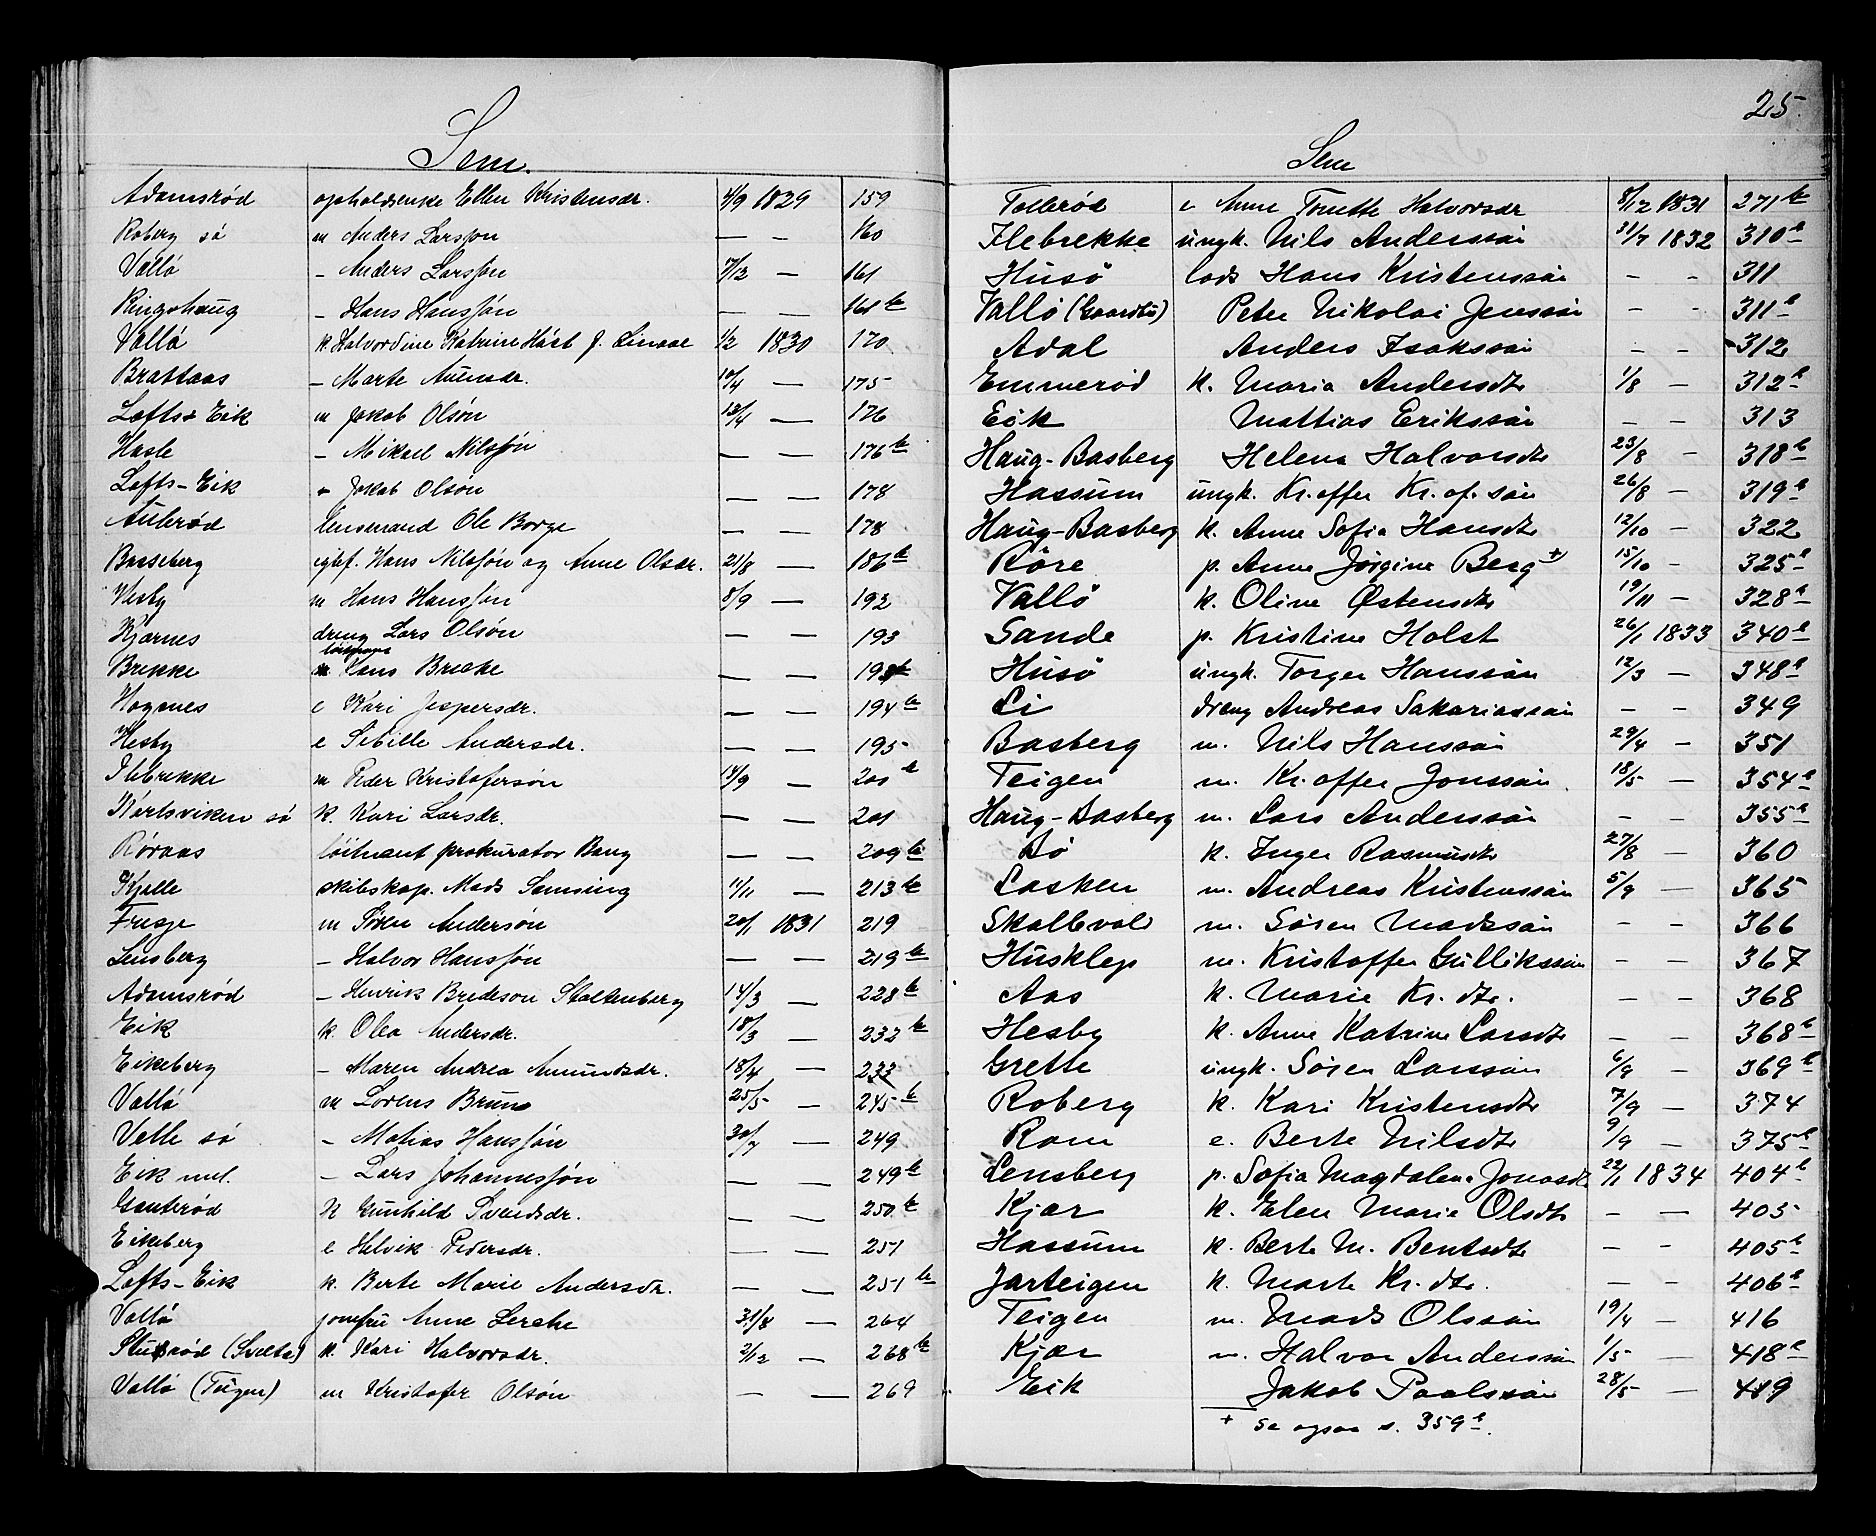 Sem.
Adamsrød opholdsenke Ellen Kristensdr. 4/9 1829 159
Roberg sö m Anders Larssøn — — 160
Vallö – Anders Larssøn 7/12 — 161
Ringshaug – Hans Hanssøn — — 161 b
Vallö k. Halvordine Katrine Häst f. Linaae 1/2 1830 170
Brattaas – Marte Auensdr. 10/4 — 175
Lofts Eik m Jakob Olsøn 13/4 — 176
Hasle – Mikael Nilssøn — — 176 b
Lofts-Eik Jakob Olsøn — — 178
Aulerød lensmand Ole Borge — — 178
Basseberg egtef. Hans Nilssøn og Anne Olsdr. 21/8 — 186 b
Vesby m Hans Hanssøn 8/9 — 192
Kjærnes dreng Lars Olsøn — — 193
Brekke Hans Brekke — — 193 b
Hognes e Kari Jespersdr. — — 194 b
Hesby e Sibille Andersdr. — — 195
Ilebrekke m Peder Kristofersøn 14/9 — 200 b
Kortsviken sö k. Kari Larsdr. — — 201
Röraas löitnant prokurator Bang — — 209 b
Kjelle skibskap. Mads Samsing 11/11 — 213 b
Fresje m Sören Andersøn 20/1 1831 219
Lensberg – Halvor Hanssøn — — 219 b
Adamsrød – Henrik Bredeson Stoltenberg 14/3 — 228 b
Eik k. Olea Andersdr. 18/3 — 232 b
Eikeberg – Maren Andrea Amundsdr. 18/4 — 233
Vallö m Lorens Bruun 25/5 — 245 b
Velle sö – Matias Hanssøn 30/7 — 249
Eik mel. – Lars Johannessøn — — 249 b
Gauterød k Gunhild Svendsdr. — — 250 b
Eikeberg e Helvik Pedersdr. — — 251
Lofts-Eik k. Berte Marie Andersdr. — — 251 b
Vallö jomfru Anne Lerche 31/8 — 264
(Svelta) k. Kari Halvorsdr. 2/12 — 268 b
Vallö (Teigen) m Kristofer Olsøn — — 269
25.
Sem
Tollerød e Anne Tonette Halvorsdr 8/12 1831 271 b
Ilebrekke ungk. Nils Anderssøn 31/7 1832 310 b
Husö lods Hans Kristenssøn – – 311
Vallö (Gaardbö) Peter Nikolai Jenssøn – – 311 b
Adal Anders Isakssøn – – 312
Emmerød k. Maria Andersdtr 1/8 – 312 b
Eök Mattias Erikssøn – – 313
Haug-Basberg Helena Halvorsdtr 23/8 – 318 b
Hassum ungk. Kr.offer Kr.of.søn 26/8 – 319 b
Haug-Basberg k. Anne Sofia Hansdtr 12/10 – 322
Röre p. Anne Jörgine Berg +) 15/10 – 325 b
Vallö k. Oline Østensdtr 19/11 – 328 b
Sande p. Kristine Holst 26/1 1833 340 b
Husö ungk. Torger Hanssøn 12/3 — 348 b
Li dreng Andreas Sakariassøn – – 349
Basberg m. Nils Hanssøn 29/4 – 351
Teigen m. Kr.offer Jonssøn 18/5 — 354 b
Haug-Basberg m. Lars Anderssøn – – 355 b
Bö k. Inger Rasmusdtr 27/8 – 360
Lasken m. Andreas Kristenssøn 5/9 — 365
Skallevold m. Sören Madssøn – – 366
Husklep m. Kristoffer Gullikssøn – – 367
Aas k. Marie Kr.dtr. – – 368
Hesby k. Anne Katrine Larsdtr – – 368 b
Grette ungk. Sören Larssøn 6/9 — 369 b
Roberg k. Kari Kristensdtr 7/9 — 374
Rom e. Berte Nilsdtr 9/9 — 375 b
Lensberg p. Sofia Magdalena Jonasdtr 22/1 1834 404 b
Kjær k. Elen Marie Olsdtr – – 405
Hassum k. Berte M. Bentsdtr – – 405 b
Jarteigen k. Marte Kr.dtr. — — 406 b
Teigen m. Mads Olssøn 19/4 – 416
Kjær m. Halvor Anderssøn 1/5 — 418 b
Eik Jakob Paalssøn 28/5 — 419
+ Se ogsaa s. 359 b.